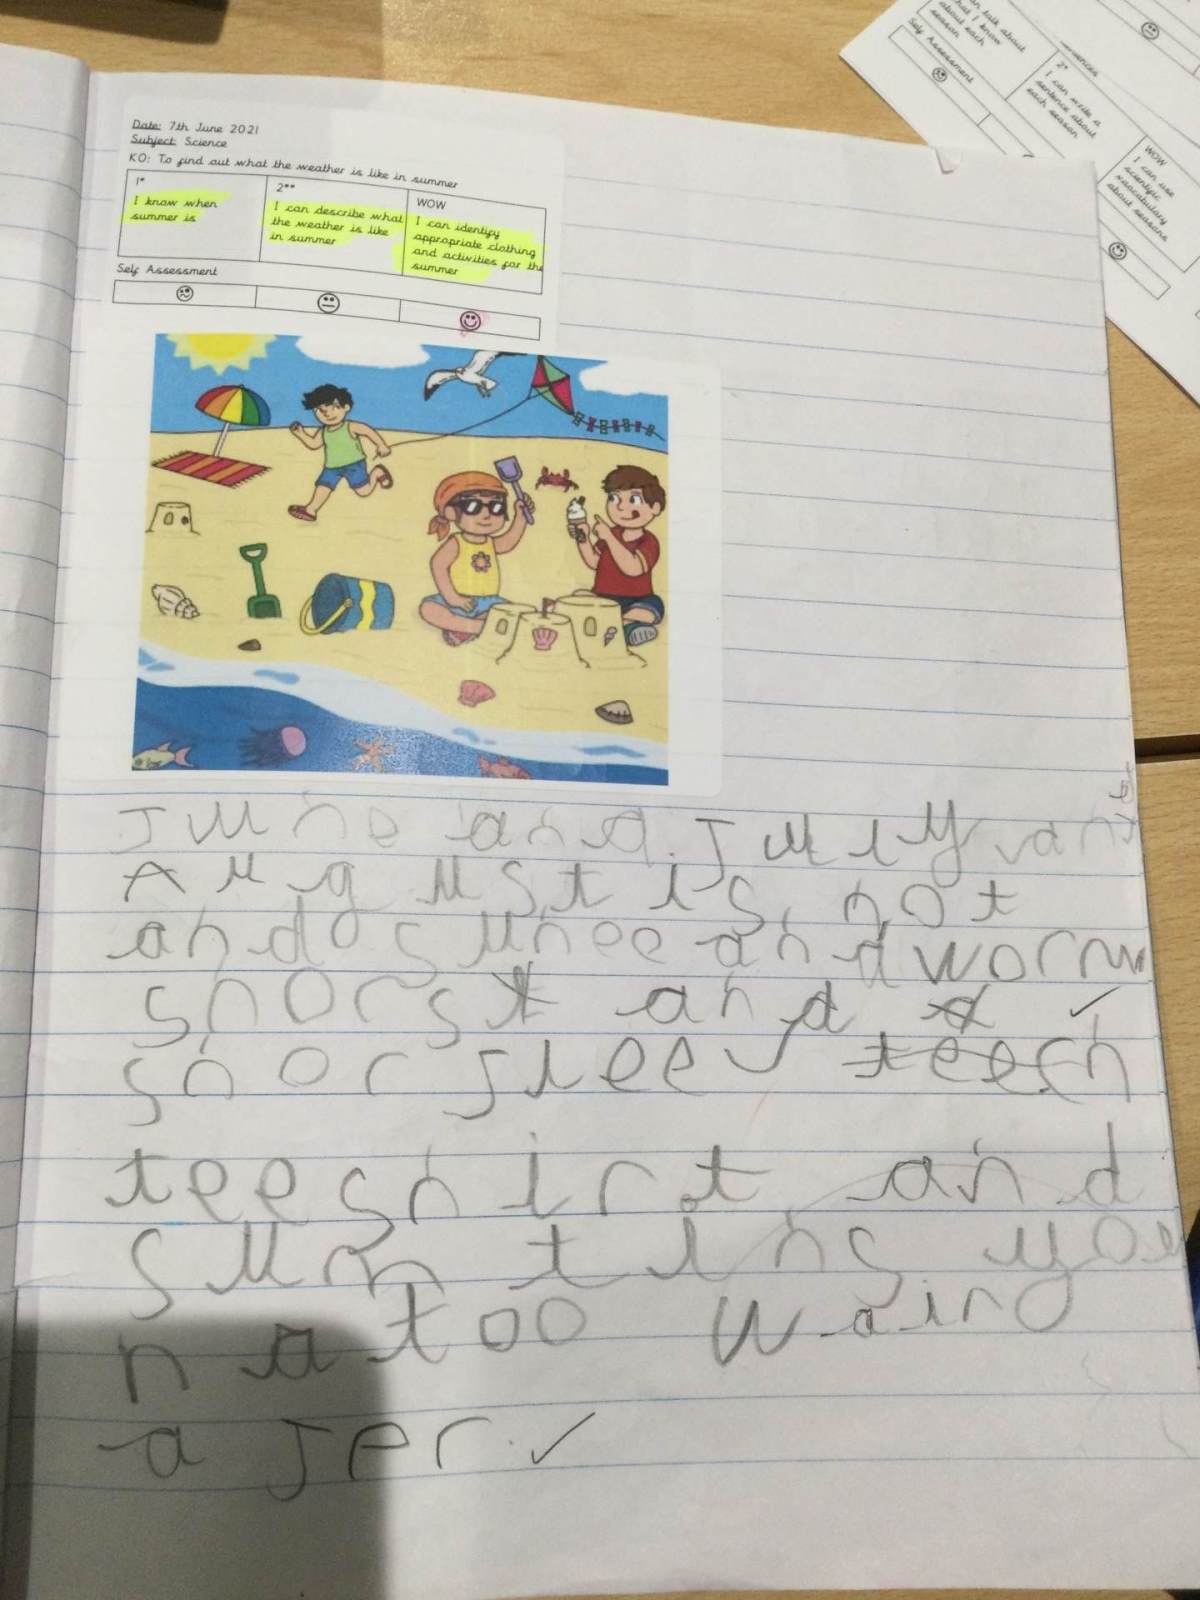 Date: 7th June 2021
Subject: Science
KO: To find out what the weather is like in summer
1*
I know when
summer is
2**
I can describe what
the weather is like
in summer
WOW
I can identify
appropriate clothing
and activities for the
summer
Self Assessment
June and July and
August is hot
and sunee and worm
shorst and
shor sleev teesh
teeshirt and
sumtins you
na too waing
a jer.
can talk about
what I know
about each
season
2*
I can write a
sentence about
each season
WOW
I can use
scientific
vocabulary
about seasons
Self Assessment